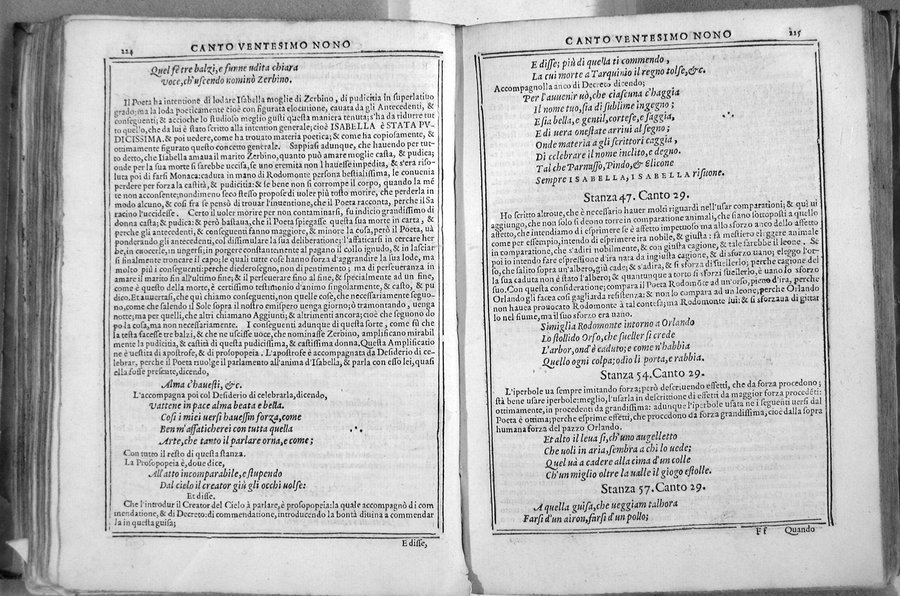 224
CANTO VENTESIMO NONO
Quel fè tre balzi, e funne udita chiara
Voce, ch'uscendo nominò Zerbino.
Il Poeta ha intentione di lodare Isabella moglie di Zerbino, di pudicitia in superlatiuo
grado; ma la loda poeticamente cioè con figurata elocutione, cauata da gli Antecedenti, &
conseguenti; & accioche lo studioso meglio gusti questa maniera tenuta; s'ha da ridurre tut
to quello, che da lui è stato scritto alla intention generale; cioè ISABELLA è STATA PV-
DICISSIMA. & poi uedere, come ha trouato materia poetica; & come ha copiosamente, &
ottimamente figurato questo concetto generale. Sappiasi adunque, che hauendo per tut-
to detto, che Isabella amaua il marito Zerbino, quanto può amare moglie casta, & pudica;
onde per la sua morte si sarebbe uccisa, se uno eremita non l'hauesse impedita, & s'era riso-
luta poi di farsi Monaca: caduta in mano di Rodomonte persona bestialissima, le conuenia
perdere per forza la castità, & pudicitia: & le bene non si corrumpe il corpo, quando la mé
te non acconsente; nondimeno seco stesso propose di uoler più tosto morire, che perderla in
modo alcuno, & così fra se pensò di trouar l'inuentione, che il Poeta racconta, perche il Sa
racino l'uccidesse. Certo il uoler morire per non contaminarsi, fu indicio grandissimo di
donna casta; & pudica: & però bastaua, che il Poeta spiegasse questa sua morte in carta, &
perche gli antecedenti, & conseguenti fanno maggiore, & minore la cosa, però il Poeta, uà
ponderando gli antecedenti, col dissimulare la sua deliberatione; l'affaticarsi in cercare her
be, in cuocerle, in ungersi; in porgere constantemente al pagano il collo ignudo, & in lasciar
si finalmente troncare il capo; le quali tutte cose hanno forza d'aggrandire la sua lode, ma
molto più i conseguenti: perche diedero segno, non di pentimento; ma di perseueranza in
amare il marito fin all'ultimo fine; & il perseuerare fino al fine, & specialmente ad un fine,
come è questo della morte, è certissimo testimonio d'animo singolarmente, & casto, & pu
dico. Et auuertasi, che qui chiamo conseguenti, non quelle cose, che necessariamente seguo-
no, come che salendo il Sole sopra il nostro emispero uenga giorno; ò tramontando, uenga
notte; ma per quelli, che altri chiamano Aggiunti; & altrimenti ancora; cioè che seguono do
po la cosa, ma non necessariamente. I conseguenti adunque di questa sorte, come fù che
la testa facesse tre balzi, & che ne uscisse uoce, che nominasse Zerbino, amplificano mirabil
mente la pudicitia, & castità di questa pudicissima, & castissima donna. Questa Amplificatio
ne è uestita di apostrofe, & di prosopopeia. L'apostrofe è accompagnata da Desiderio di ce-
lebrar, perche il Poeta riuolge il parlamento all'anima d'Isabella, & parla con esso lei, quasi
ella fosse presente, dicendo,
Alma c'hauesti, &c.
L'accompagna poi col Desiderio di celebrarla, dicendo,
Vattene in pace alma beata e bella.
Così i miei uersi hauessin forza, come
Ben m'affaticherei con tutta quella
Arte, che tanto il parlare orna, e come;
Con tutto il resto di questa stanza.
La Prosopopeia è, doue dice,
All'atto incomparabile, e stupendo
Dal cielo il creator giù gli occhi uolse:
Et disse.
Che l'introdur il Creator del Cielo à parlare, è prosopopeia: la quale accompagnò di com
mendatione, & di Decreto: di commendatione, introducendo la bontà diuina a commendar
la in questa guisa;
E disse,
CANTO VENTESIMO NONO
225
E disse; più di quella ti commendo,
La cui morte a Tarquinio il regno tolse, &c.
Accompagnolla anco di Decreto dicendo;
Per l'auuenir uò, che ciascuna c'haggia
Il nome tuo, sia di sublime ingegno;
E sia bella, e gentil, cortese, e saggia,
E di uera onestate arriui al segno;
Onde materia a gli scrittori caggia,
Di celebrare il nome inclito, e degno.
Tal che Parnasso, Pindo, & Elicone
Sempre ISABELLA, ISABELLA risuone.
Stanza 47. Canto 29.
Ho scritto altroue, che è necessario hauer molti riguardi nell'usar comparationi; & qui ui
aggiungo, che non solo si deono torre in comparatione animali, che siano sottoposti a quello
affetto, che intendiamo di esprimere se è affetto impetuoso ma allo sforzo anco dello affetto
come per essempio, intendo di esprimere ira nobile, & giusta: fà mestiero eleggere animale
in comparatione, che s'adiri nobilmente, & con giusta cagione, & tale sarebbe il leone. Se
poi io intendo fare espressione d'ira nata da ingiusta cagione, & di sforzo uano; eleggo l'or-
so, che salito sopra un'albero, giù cade; & s'adira, & si sforza di suellerlo; perche cagione del
la sua caduta non è stato l'albero; & quantunque a torto si sforzi suellerlo, è uano lo sforzo
suo. Con questa consideratione; compara il Poeta Rodomóte ad un'orso, pieno d'ira, perche
Orlando gli facea così gagliarda resistenza: & non lo compara ad un leone, perche Orlando
non hauea prouocato Rodomonte à tal contesa; ma Rodomonte lui: & si sforzaua di gittar
lo nel fiume, ma il suo sforzo era uano.
Simiglia Rodomonte intorno a Orlando
Lo stolido Orso, che sueller si crede
L'arbor, ond'è caduto; e come n'habbia
Quello ogni colpa; odio li porta, e rabbia.
Stanza 54. Canto 29.
L'iperbole ua sempre imitando forza; però descriuendo effetti, che da forza procedono;
stà bene usare iperbole: meglio, l'usarla in descrittione di effetti da maggior forza procedéti:
ottimamente, in procedenti da grandissima: adunque l'iperbole usata ne i seguenti uersi dal
Poeta è ottima; perche esprime effetti, che procedono da forza grandissima, cioè dalla sopra
humana forza del pazzo Orlando.
Et alto il leua sì, ch'uno augelletto
Che uoli in aria, sembra a chi lo uede;
Quel uà a cadere alla cima d'un colle
Ch'un miglio oltre la ualle il giogo estolle.
Stanza 57. Canto 29.
A quella guisa, che ueggiam talhora
Farsi d'un airon, farsi d'un pollo;
Ff
Quando